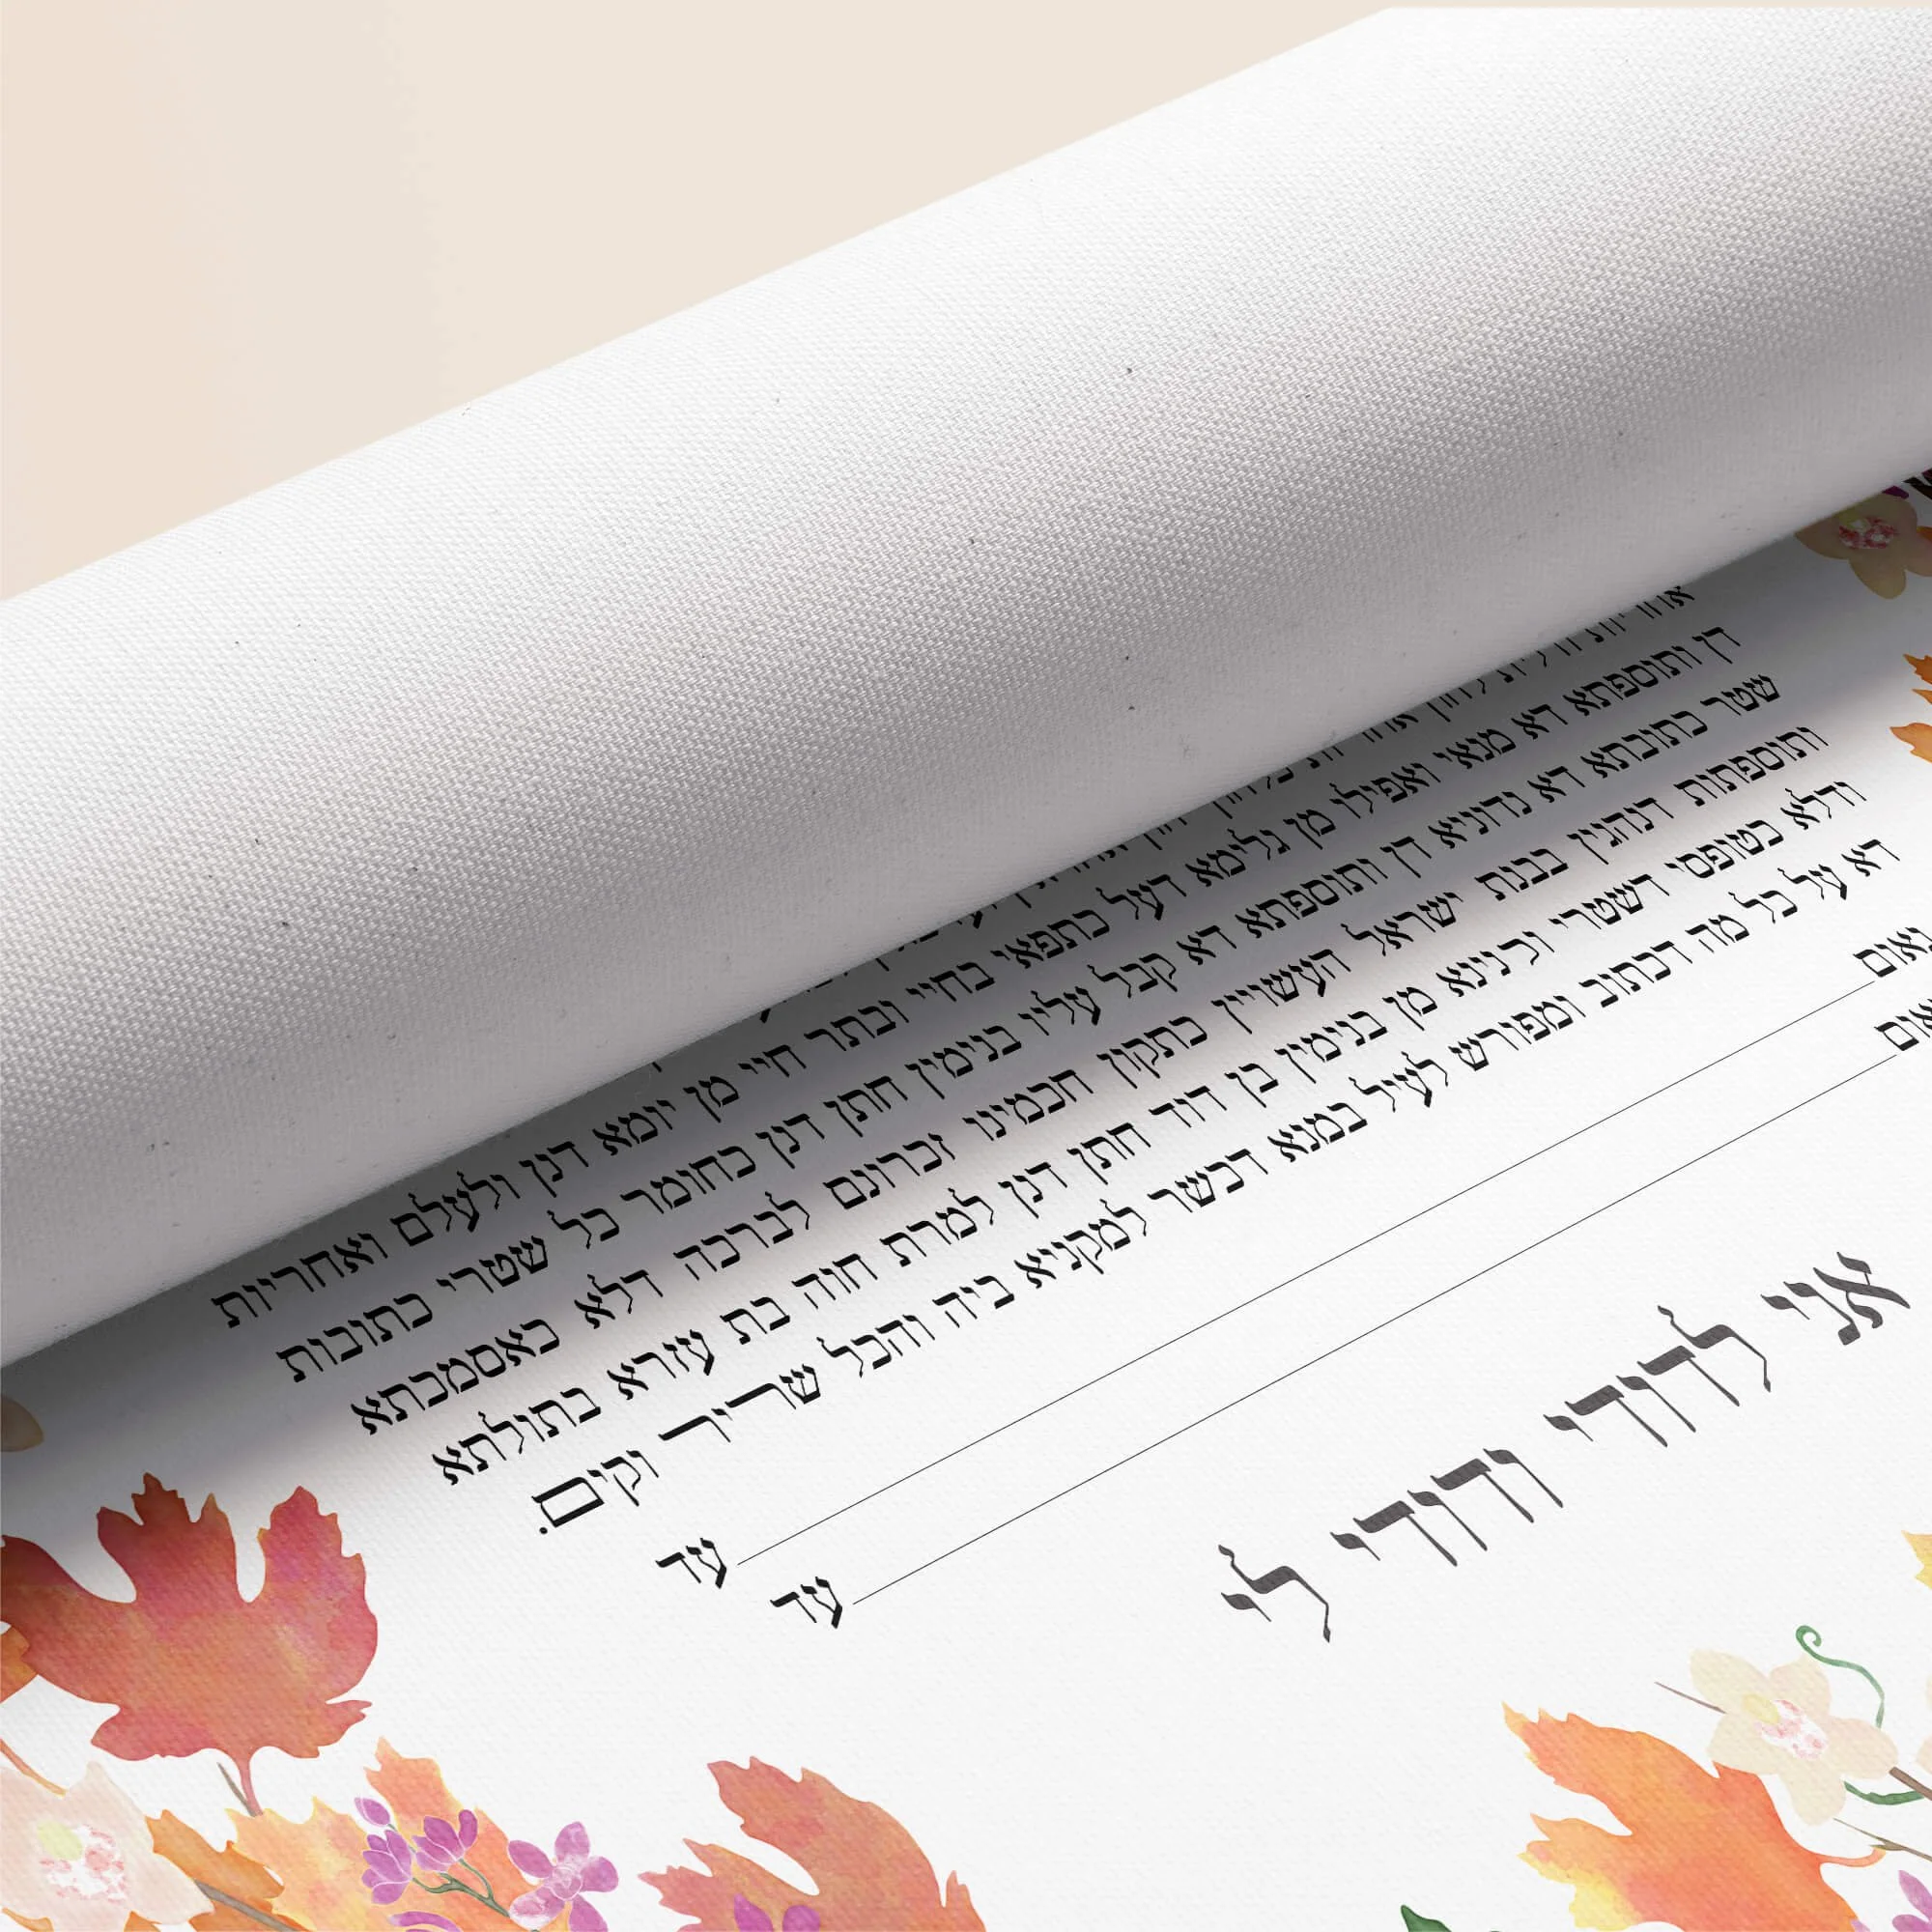 דן ותוספתא דא מנאי ואפילו מן גלימא דעל כתפאי בחיי ובתר חיי מן יומא דנן ולעלם ואחריות
שטר כתובתא דא נדוניא דן ותוספתא דא קבל עליו בנימין חתן דנן כחומר כל שטרי כתובות
ותוספתות דנהגין בבנת ישראל העשויין כתקון חכמינו זכרונם לברכה דלא כאסמכתא
ודלא כטופסי דשטרי וקנינא מן בנימין בן דוד חתן דנן למרת חוה בת עזרא בתולתא
דא על כל מה דכתוב ומפורש לעיל במנא דכשר למקניא ביה והכל שריר וקים.
נאום עד
אום עד
אני לדודי ודודי לי